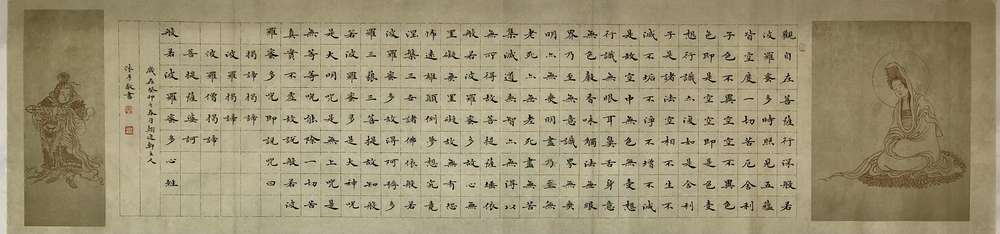 觀自在菩薩行深般若
波羅蜜多時照見五蘊
皆空度一切苦厄舍利
子色不異空空不異色
色即是空空即是色受
想行識亦復如是舍利
子是諸法空相不生不
滅不垢不淨不增不減
是故空中無色無受想
行識無眼耳鼻舌身意
無色聲香味觸法無眼
界乃至無意識界無無
明亦無無明盡乃至無
老死亦無老死盡無苦
集滅道無智亦無得以
無所得故菩提薩埵依
般若波羅蜜多故心無
罣礙無罣礙故無有恐
怖遠離顛倒夢想究竟
涅槃三世諸佛依般若
波羅蜜多故得阿耨多
羅三藐三菩提故知般
若波羅蜜多是大神咒
是大明咒是無上咒是
無等等咒能除一切苦
真實不虛故說般若波
羅蜜多咒即說咒曰
揭諦揭諦
波羅揭諦
波羅僧揭諦
菩提薩婆訶
般若波羅蜜多心經
歲在癸卯年春月主人
書